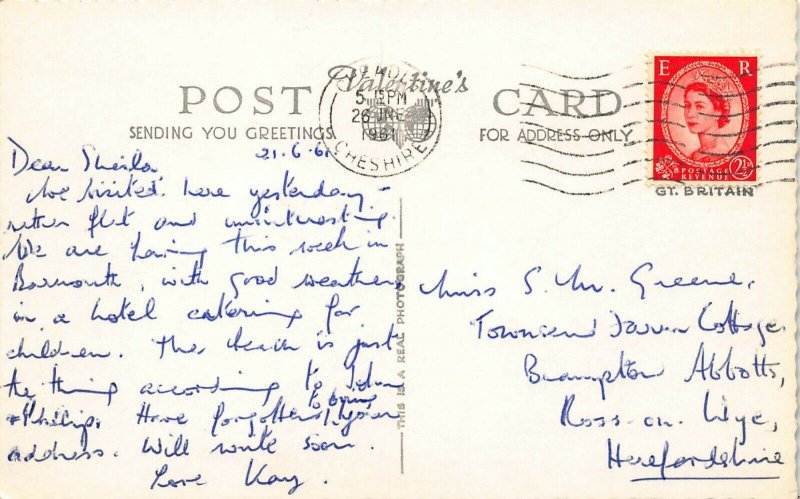 POST CARD
Valentine's
SENDING YOU GREETINGS
FOR ADDRESS ONLY
5 15 PM
26 JNE
1961
CHESHIRE
E R
2½
POSTAGE
REVENUE
GT. BRITAIN
THIS IS A REAL PHOTOGRAPH
21.6.61
Dear Sheila,
We visited here yesterday -
rather flat and uninteresting.
We are having this week in
Barmouth, with good weather,
in a hotel catering for
children. The beach is just
the thing according to John
+ Philip. Have forgotten to bring your
address. Will write soon.
Love Kay.
Miss S. M. Greene,
Townsend Cottage,
Brampton Abbotts,
Ross-on-Wye,
Herefordshire